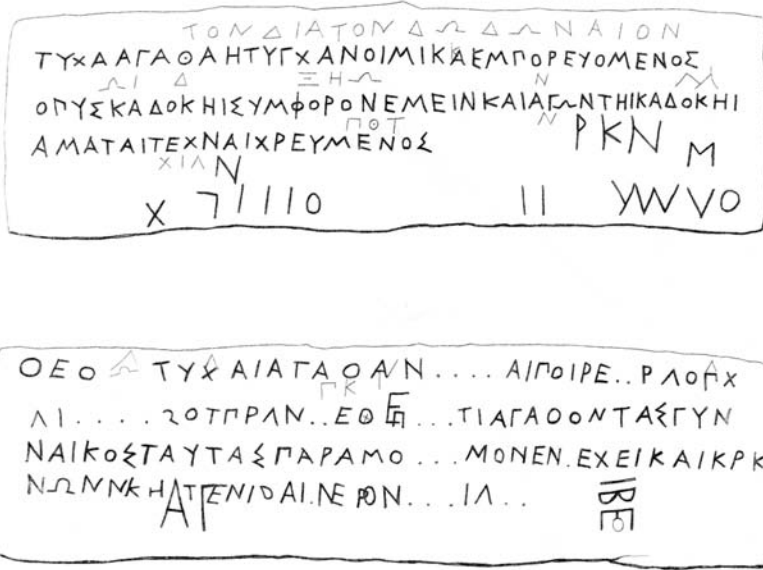 ΤΟΝΔΙΑΤΟΝΔΩΔΩΝΑΙΟΝ
ΤΥΧΑΑΓΑΘΑΗΤΥΓΧΑΝΟΙΜΙΚΑΕΜΠΟΡΕΥΟΜΕΝΟΣ
ΩΙ Δ ΞΗΩ Ν
ΟΠΥΣΚΑΔΟΚΗΙΣΥΜΦΟΡΟΝΕΜΕΙΝΚΑΙΑΓΩΝΤΗΙΚΑΔΟΚΗΙ
ΠΟΤ Ν
ΑΜΑΤΑΙΤΕΧΝΑΙΧΡΕΥΜΕΝΟΣ ΡΚΝ Μ
ΧΙΛ Ν
Χ ΙΙΙΙΟ ΙΙ
ΟΕΟ ΤΥΧΑΙΑΓΑΘΑΝ.... ΑΙΠΟΙΡΕ..ΡΛΟΓΧ
ΓΚΤ
ΛΙ..... ΟΤΠΡΛΝ..ΕΘ ...ΤΙΑΓΑΟΟΝΤΑΣΓΥΝ
ΝΑΙΚΟΣΤΑΥΤΑΣΠΑΡΑΜΟ...ΜΟΝΕΝ.ΕΧΕΙΚΑΙΚΡΚ
ΝΩΝΝΚΗΑΤΓΕΝΙΟΑΙ.ΝΕΡΟΝ...ΙΛ..